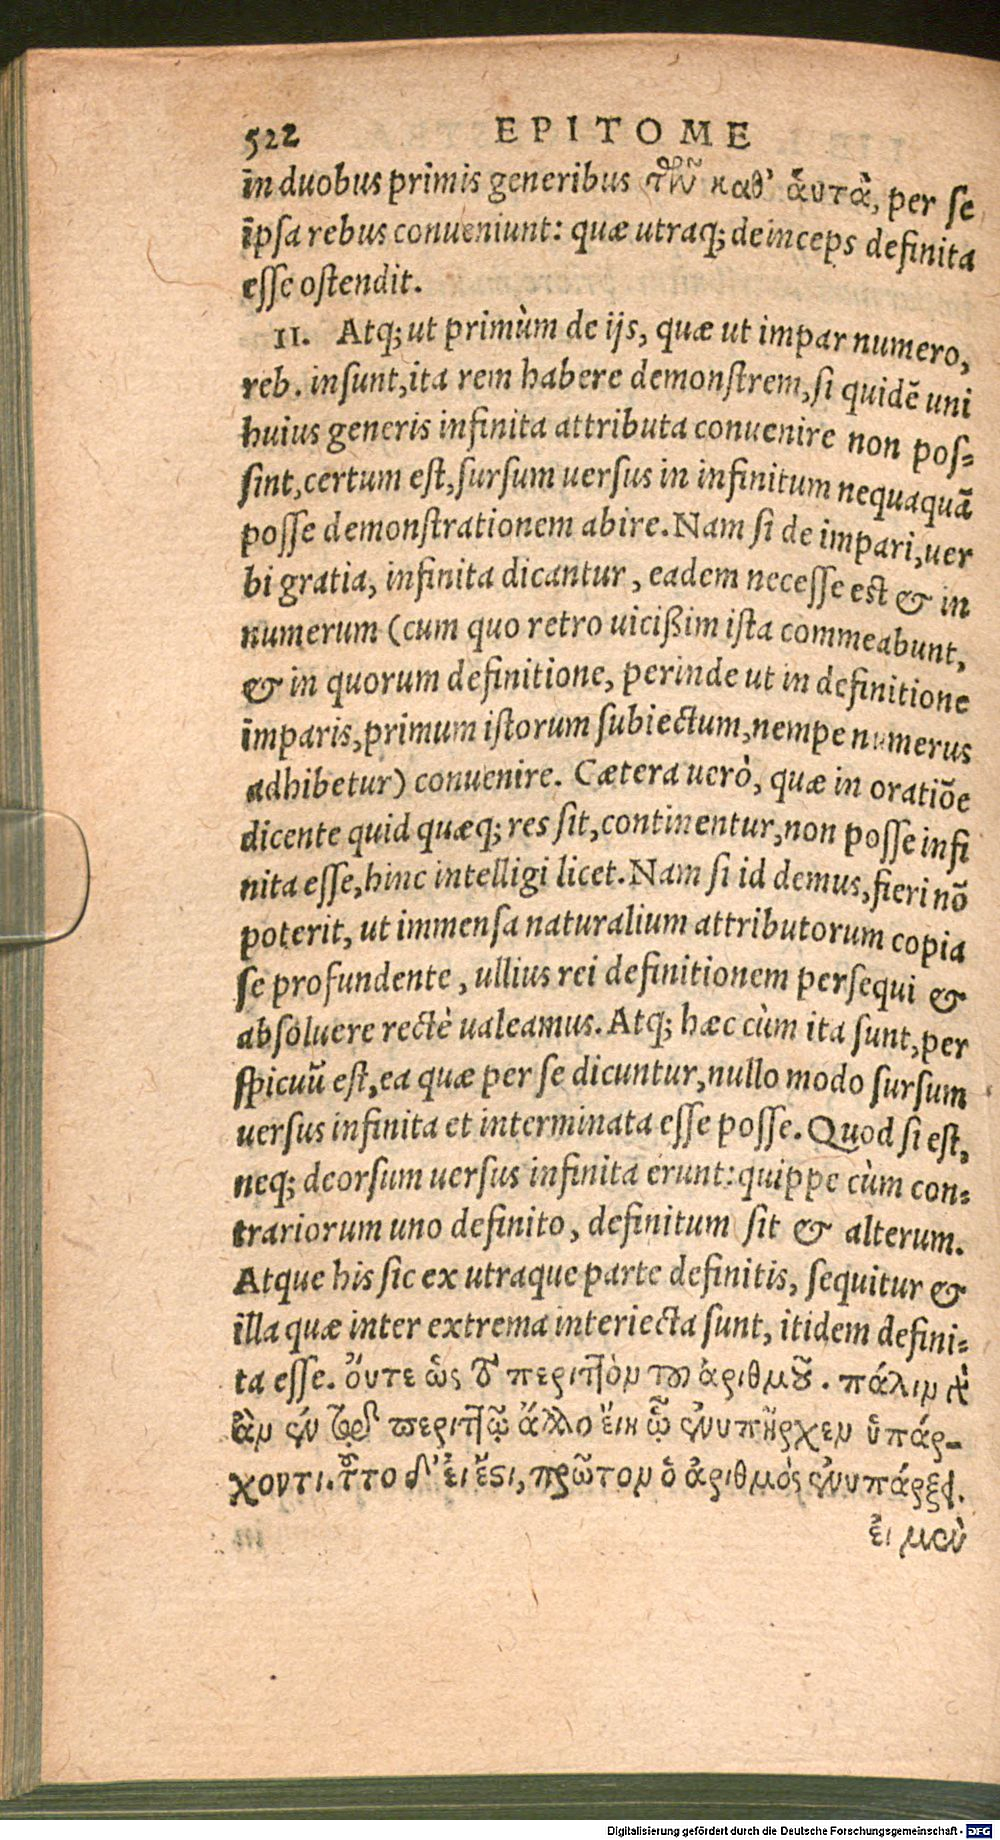 522 EPITOME
in duobus primis generibus τῶν καθ' ἁυτὰ, per se
ipsa rebus conueniunt: quæ utraq; deinceps definita
esse ostendit.
II. Atq; ut primùm de ijs, quæ ut impar numero,
reb. insunt, ita rem habere demonstrem, si quidē uni
huius generis infinita attributa conuenire non pos=
sint, certum est, sursum uersus in infinitum nequaquā
posse demonstrationem abire. Nam si de impari, uer
bi gratia, infinita dicantur, eadem necesse est & in
numerum (cum quo retro uicißim ista commeabunt,
& in quorum definitione, perinde ut in definitione
imparis, primum istorum subiectum, nempe numerus
adhibetur) conuenire. Cætera uerò, quæ in oratiōe
dicente quid quæq; res sit, continentur, non posse infi
nita esse, hinc intelligi licet. Nam si id demus, fieri nō
poterit, ut immensa naturalium attributorum copia
se profundente, ullius rei definitionem persequi &
absoluere rectè ualeamus. Atq; hæc cùm ita sunt, per
spicuū est, ea quæ per se dicuntur, nullo modo sursum
uersus infinita et interminata esse posse. Quod si est,
neq; deorsum uersus infinita erunt: quippe cùm con=
trariorum uno definito, definitum sit & alterum.
Atque his sic ex utraque parte definitis, sequitur &
illa quæ inter extrema interiecta sunt, itidem defini=
ta esse. ὄυτε ὡς τὸ περιττὸν τοῦ ἀριθμοῦ. πάλιν
ἂν ἐν τῷ περιττῷ ἄλλο ἔιη ᾧ ἐνυπῆρχεν ὑπάρ-
χοντι. τοῦτο δ' ἐι ἔστι, πρῶτον ὁ ἀριθμὸς ἐνυπάρξει.
ἐι μὲν